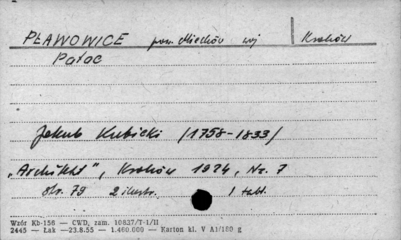 PŁAWOWICE pow. Miechów woj Kraków
Pałac
Jakub Kubicki /1758-1833/
„Architekt", Kraków 1924, Nr. 7
str. 79 2 ilustr. 1 tabl.
Wzór Kb-156 — CWD, zam. 10837/T-1/II
2445 — Łak —23.8.55 — 1.460.000 — Karton kl. V A1/180 g